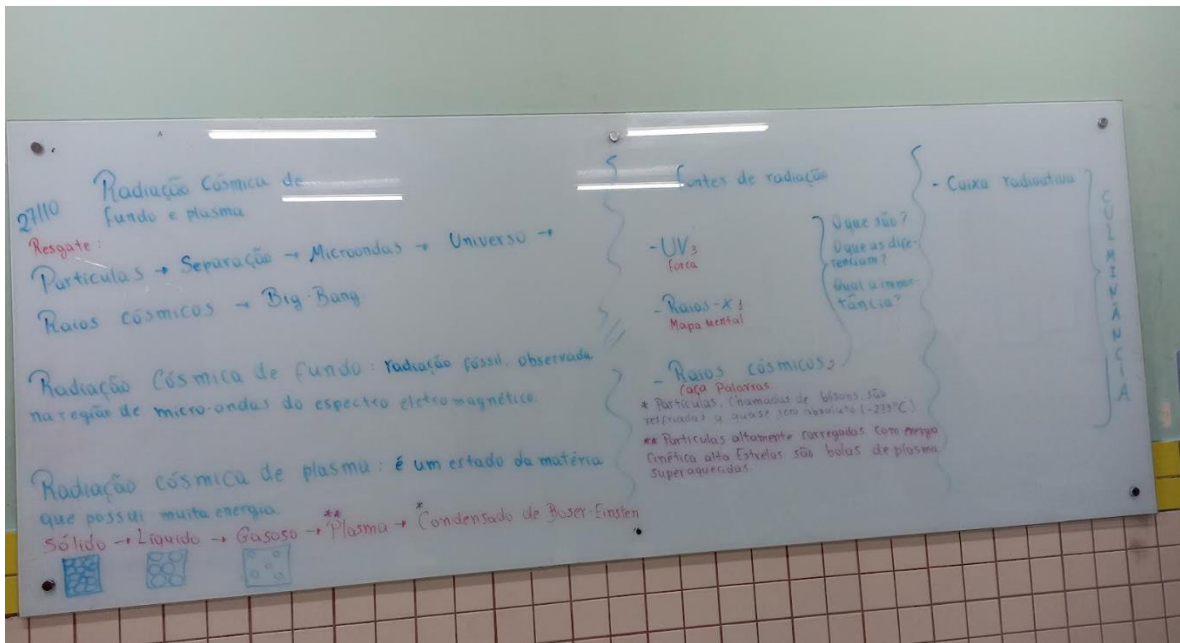 27/10
Radiação Cósmica de
fundo e plasma
Resgate:
Partículas → Separação → Microondas → Universo →
Raios cósmicos → Big-Bang
Radiação Cósmica de fundo: radiação fóssil, observada
na região de micro-ondas do espectro eletromagnético.
Radiação cósmica de plasma: é um estado da matéria
que possui muita energia.
Sólido → Líquido → Gasoso → **Plasma → *Condensado de Boser-Einsten
Fontes de radiação
- UV;
Forca
- Raios-X;
Mapa Mental
- Raios cósmicos;
Caça Palavras
O que são?
O que as dife-
renciam?
Qual a impor-
tância?
* Partículas, chamadas de bósons, são
resfriadas a quase zero absoluto (-273°C)
** Partículas altamente carregadas com energia
cinética alta Estrelas são bolas de plasma
superaquecidas.
- Caixa radioativa
CULMINÂNCIA